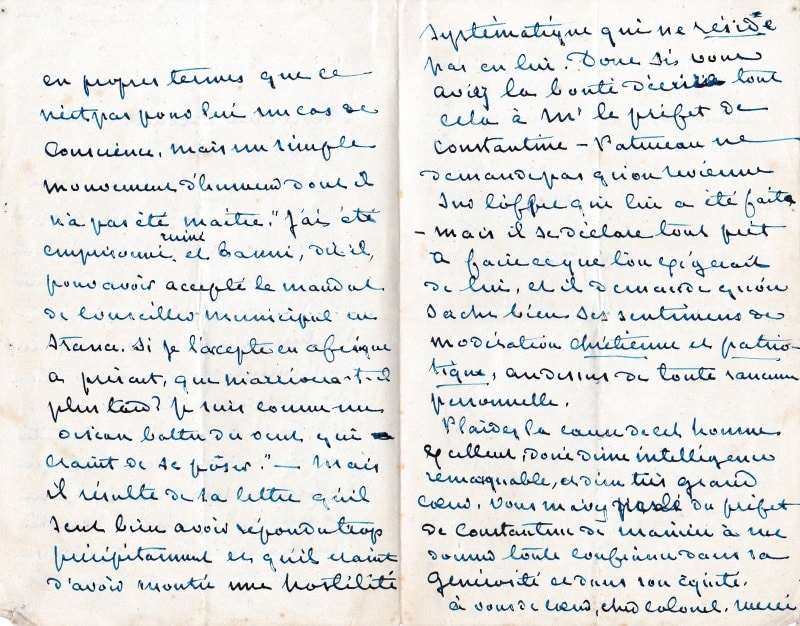 en propres termes que ce
n'est pas pour lui un cas de
Conscience, mais un simple
mouvement d'humeur dont il
n'a pas été maître. "J'ai été
emprisonné, ruiné et banni, dit il,
pour avoir accepté le mandat
de Conseiller municipal en
France. Si je l'accepte en afrique
a présent, que m'arrivera-t-il
plus tard? Je suis comme un
oiseau battu du vent qui
craint de se poser." — Mais
il résulte de sa lettre qu'il
sent bien avoir répondu trop
précipitamment et qu'il craint
d'avoir montré une hostilité
systématique qui ne réside
pas en lui. Donc si vous
aviez la bonté d'écrire tout
cela à Mr le préfet de
Constantine — Patureau ne
demande pas qu'on revienne
sur l'offre qui lui a été faite
— mais il se déclare tout prêt
à faire ce que l'on exigerait
de lui, et il demande qu'on
sache bien ses sentimens de
modération chrétienne et patrio-
tique, au dessus de toute rancune
personnelle.
Plaidez la cause de cet homme
excellent, doué d'une intelligence
remarquable, et d'un très grand
cœur. Vous m'avez parlé du préfet
de Constantine de manière à me
donner toute confiance dans sa
générosité et dans son équité.
à vous de cœur, cher Colonel. merci